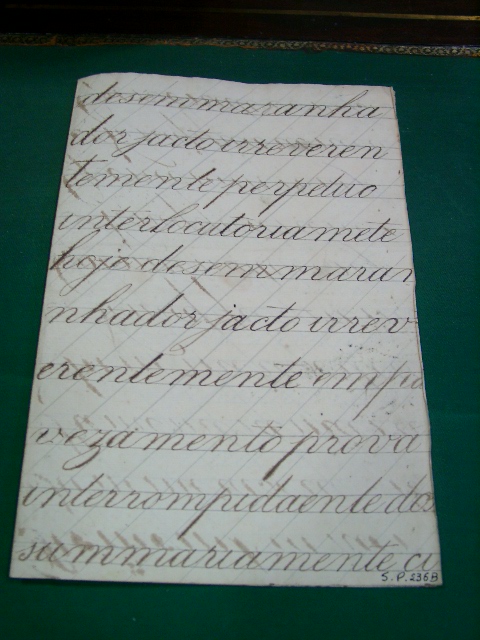 desemmaranha
dor jacto irreveren
temente perpetuo
interlocutoriamete
hoje desemmaran
nhador jacto irrev
erentemente empo
vezamento prova
interrompidaente des
summariamente ci
S.P. 236B